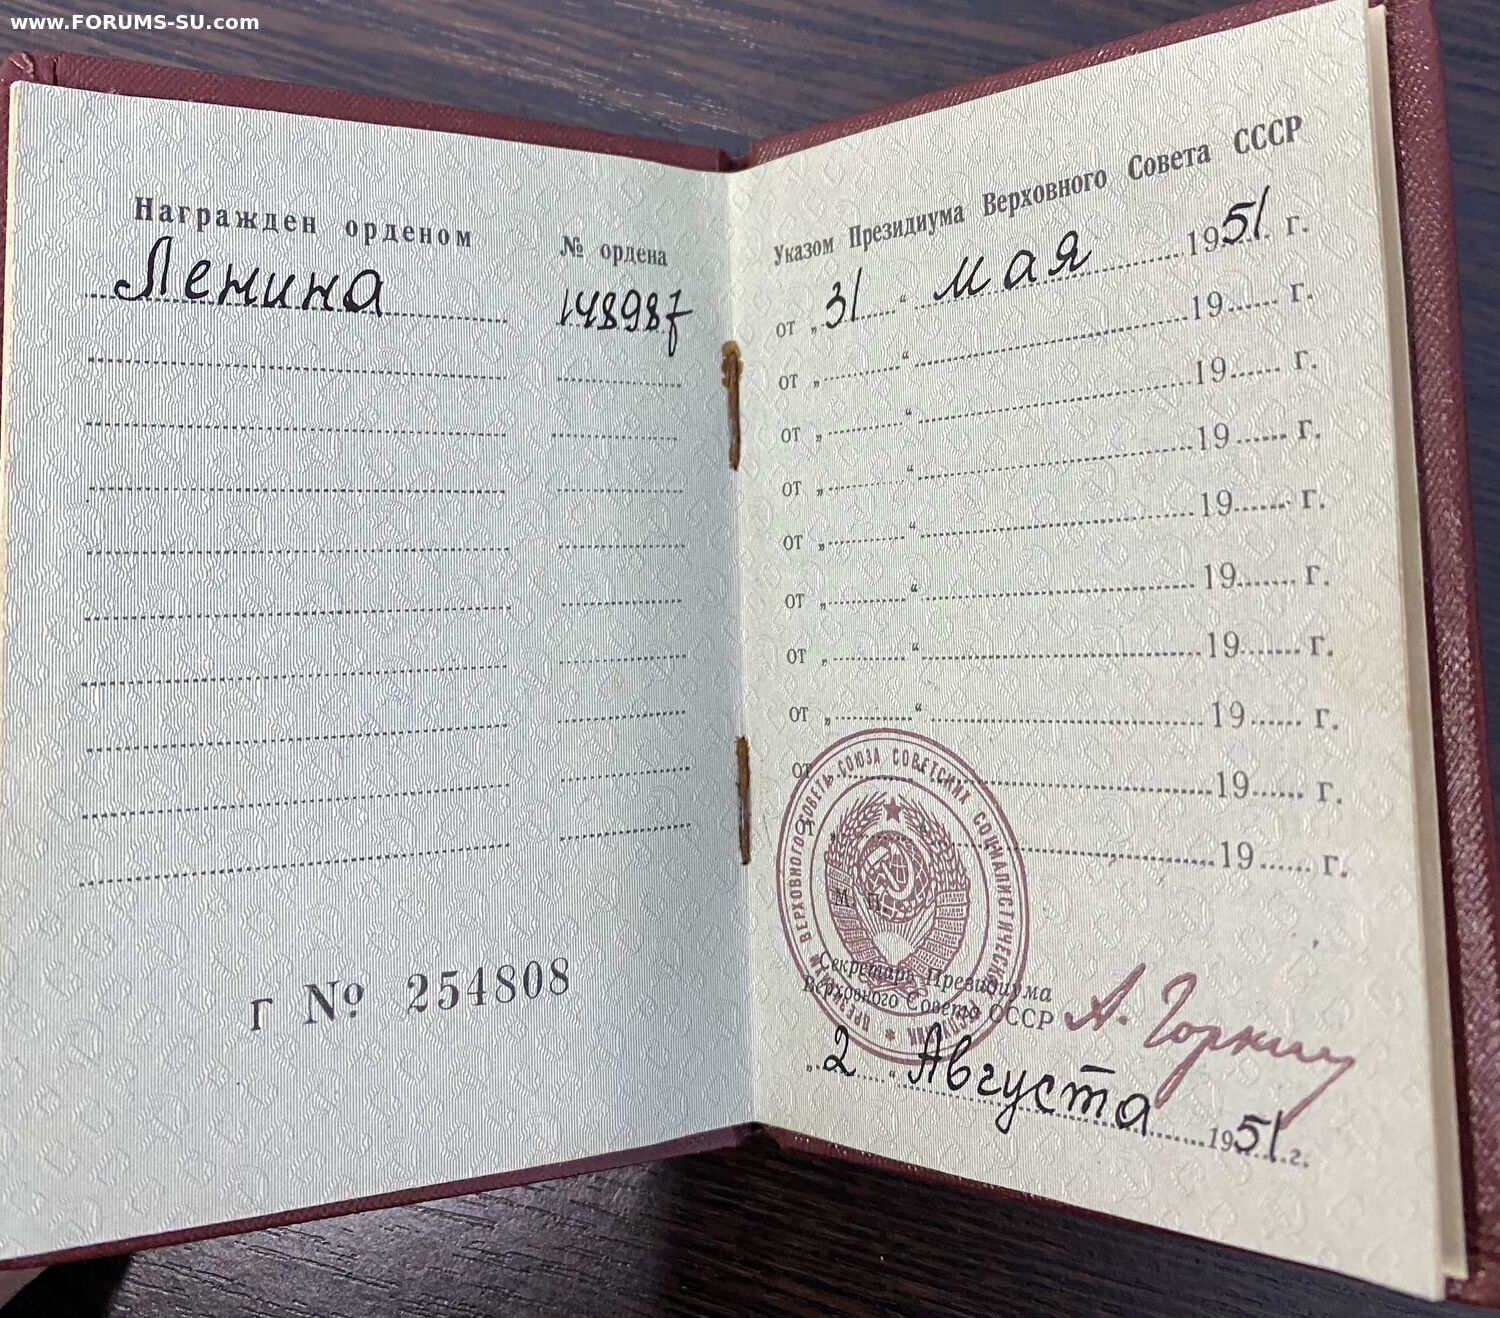 www.FORUMS-SU.com
Награжден орденом
№ ордена
Ленина
148987
г № 254808
Указом Президиума Верховного Совета СССР
от „31“ мая 1951 г.
от „ “ 19 г.
от „ “ 19 г.
от „ “ 19 г.
от „ “ 19 г.
от „ “ 19 г.
от „ “ 19 г.
от „ “ 19 г.
от 19 г.
от „ 19 г.
ПРЕЗИДИУМ ВЕРХОВНОГО СОВЕТА СОЮЗА СОВЕТСКИХ СОЦИАЛИСТИЧЕСКИХ РЕСПУБЛИК
М. П.
Секретарь Президиума
Верховного Совета СССР
А. Горкин
„2“ Августа 1951 г.